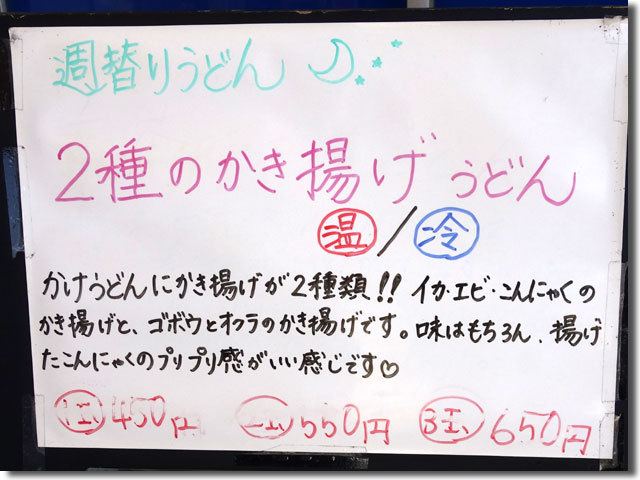 週替りうどん
2種のかき揚げうどん
温/冷
かけうどんにかき揚げが2種類!! イカ・エビ・こんにゃくの
かき揚げと、ゴボウとオクラのかき揚げです。味はもちろん、揚げ
たこんにゃくのプリプリ感がいい感じです♡
1玉 450円 2玉 550円 3玉 650円